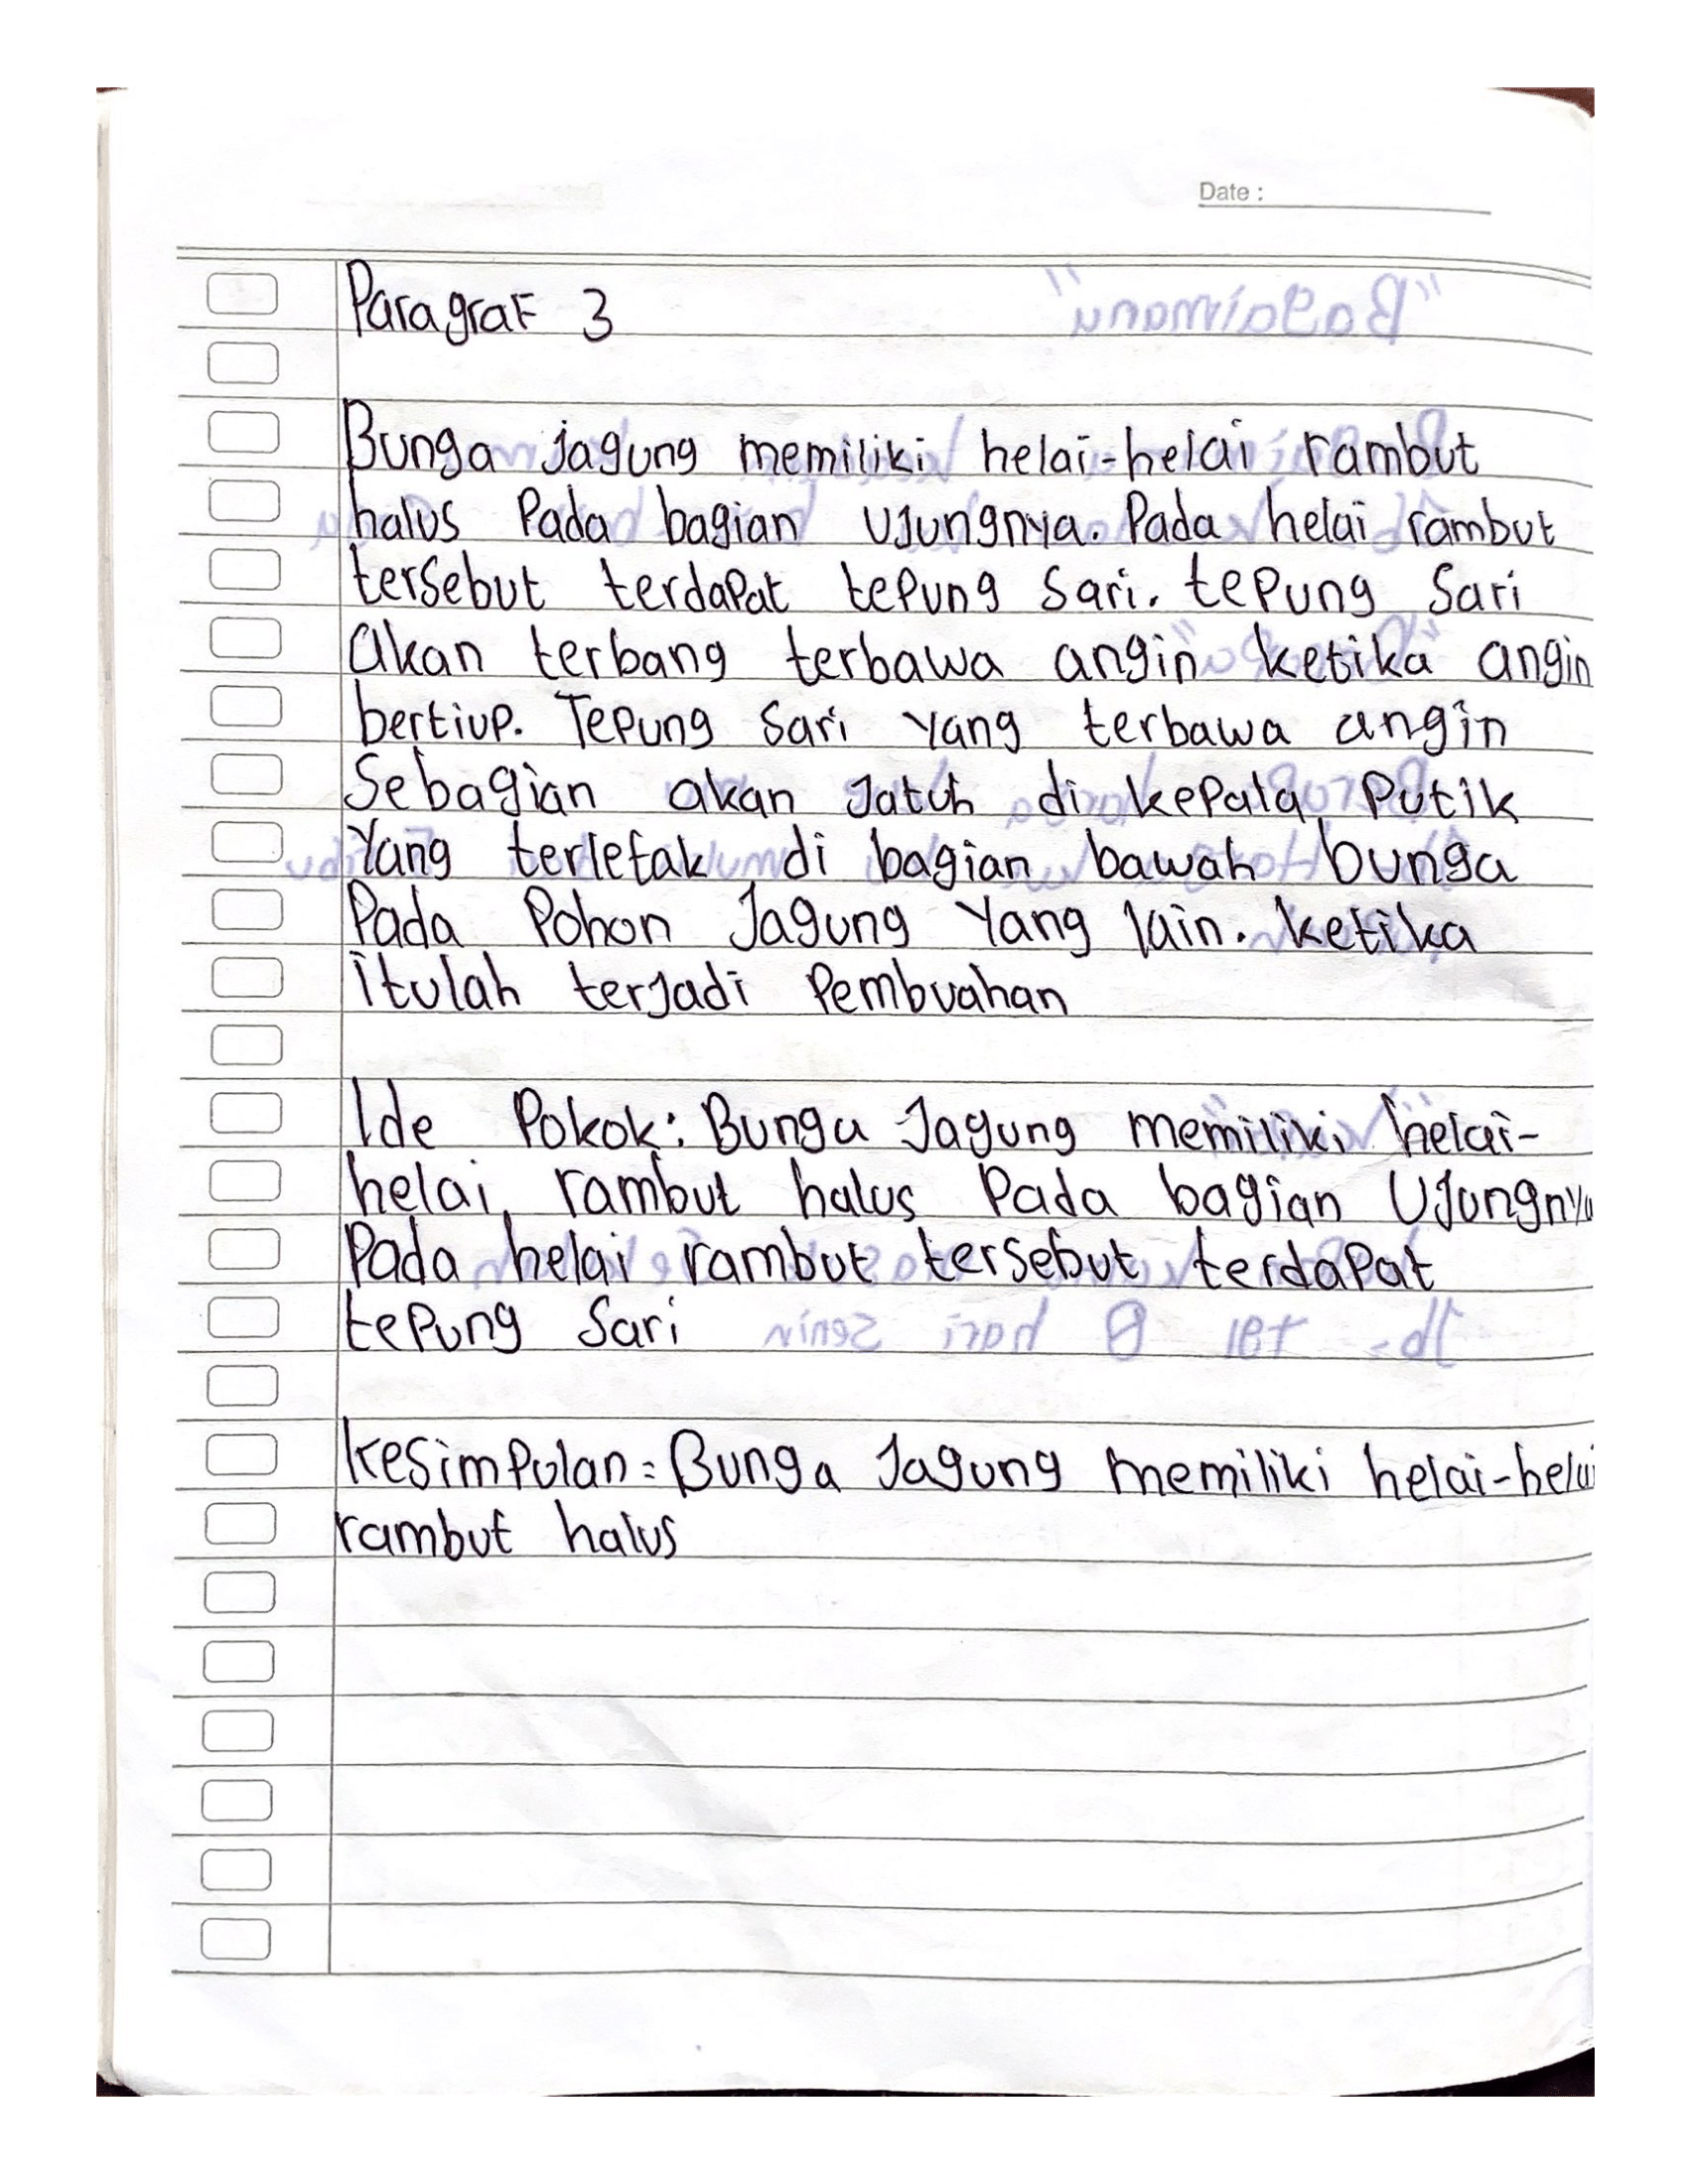 Date :
Paragraf 3
Bunga jagung memiliki helai-helai rambut
halus Pada bagian ujungnya. Pada helai rambut
tersebut terdapat tepung sari. tepung sari
akan terbang terbawa angin ketika angin
bertiup. Tepung sari yang terbawa angin
Sebagian akan jatuh di kepala Putik
Yang terletak di bagian bawah bunga
Pada Pohon Jagung Yang lain. ketika
itulah terjadi Pembuahan
Ide Pokok: Bunga Jagung memiliki helai-
helai rambut halus Pada bagian Ujungnya
Pada helai rambut tersebut terdapat
tepung Sari
Kesimpulan = Bunga Jagung memiliki helai-helai
rambut halus